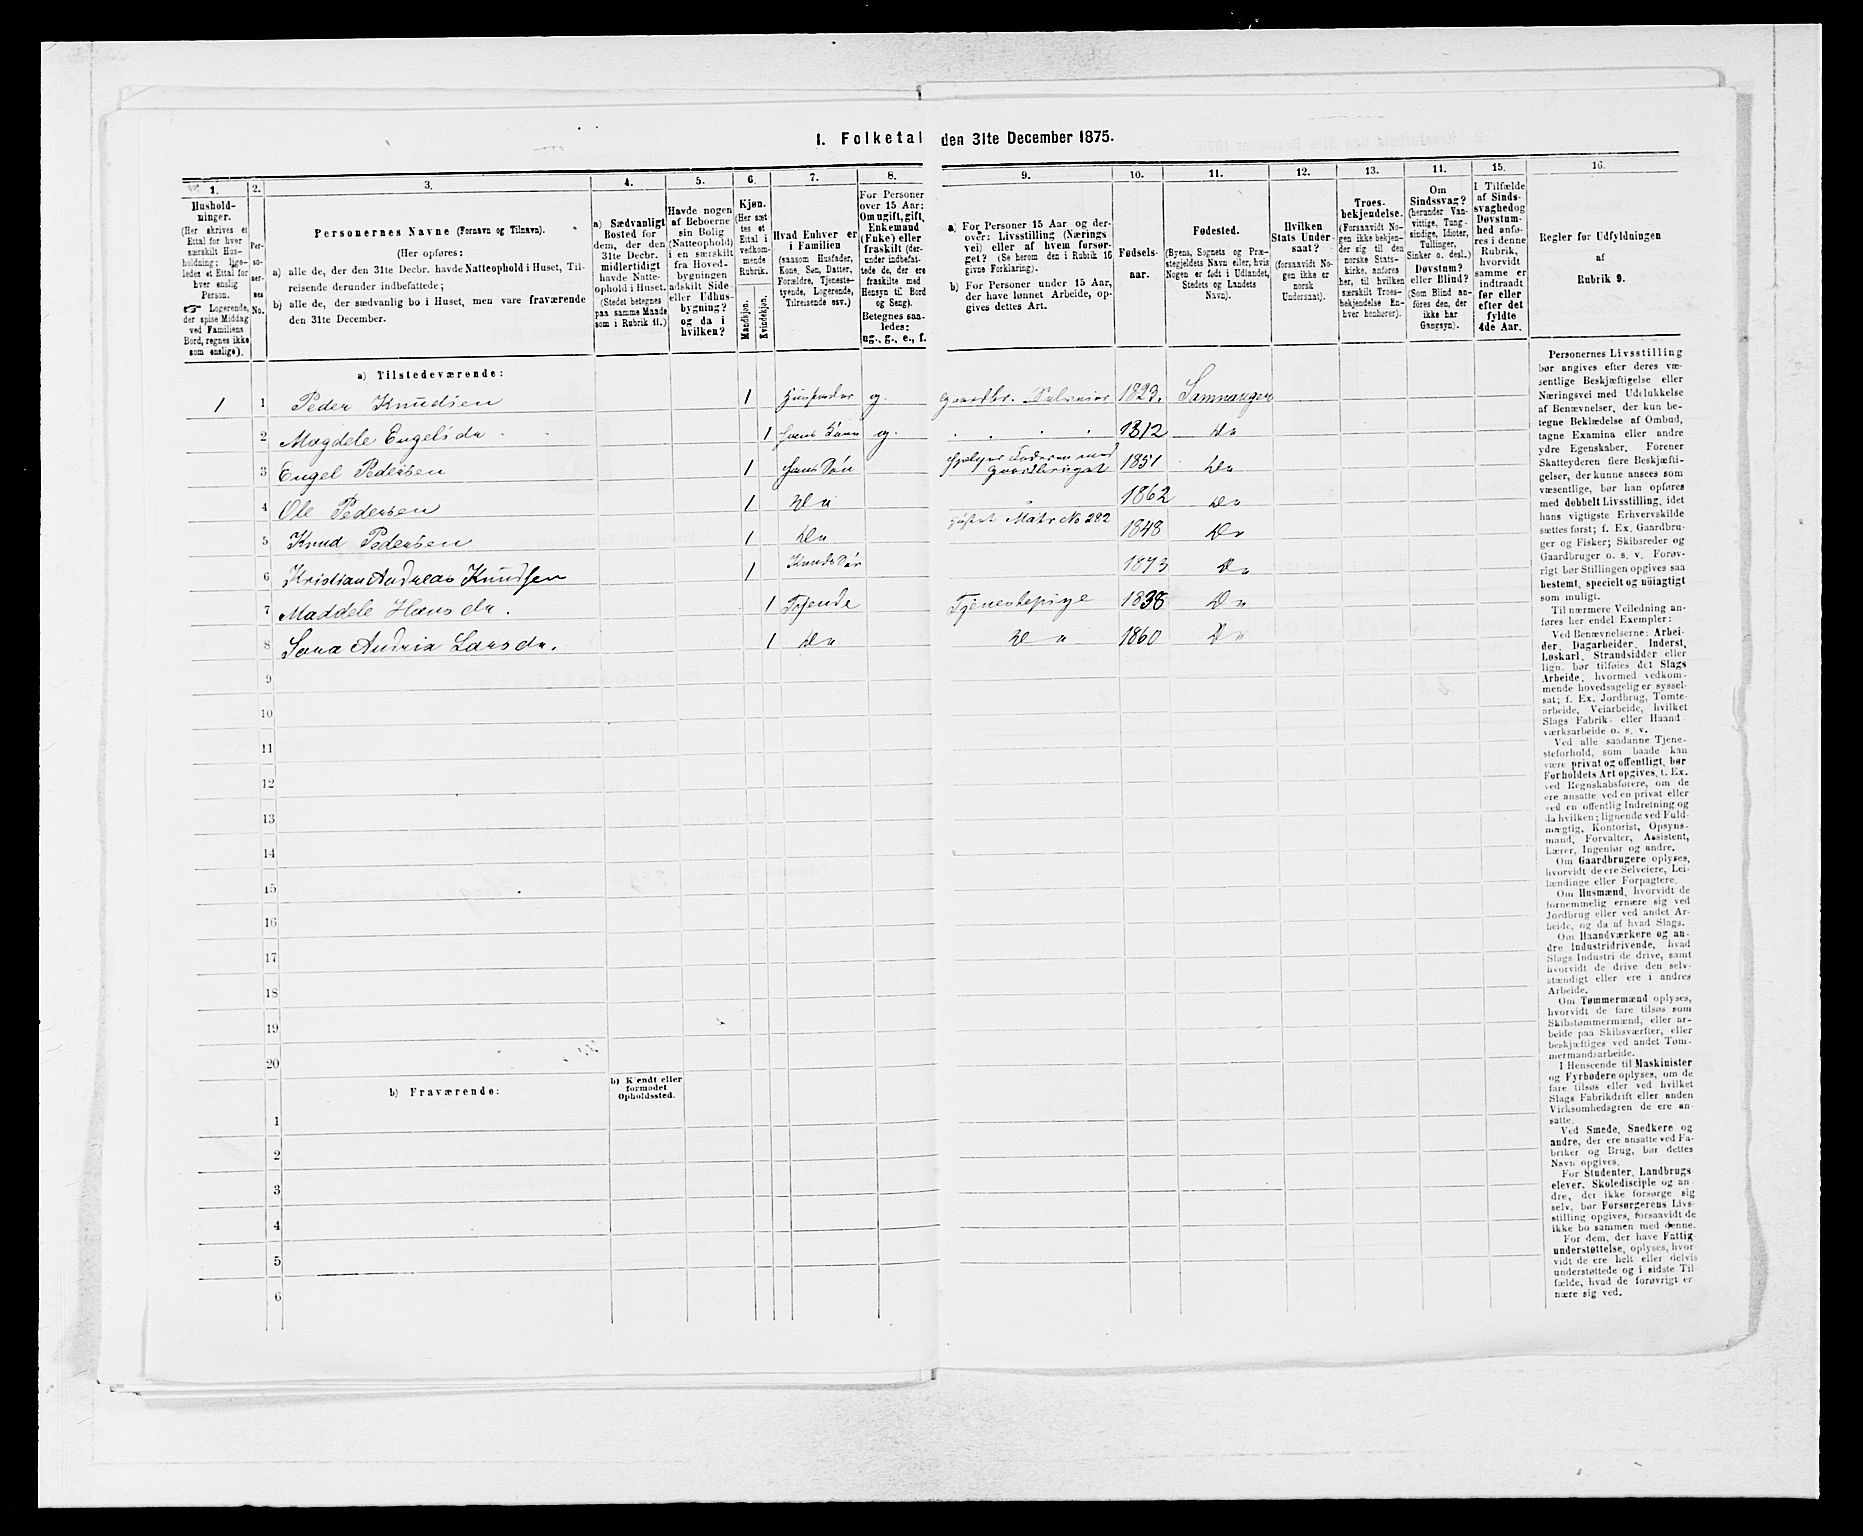 I. Folketal den 31te December 1875.
1. 2. 3. 4. 5. 6. 7. 8. 9. 10. 11. 12. 13. 11. 15. 16.
Hushold-
ninger.
(Her skrives et
Ettal for hver
særskilt Hus-
holdning; lige-
ledes et Ettal for
hver enslig
Person.
☞ Logerende,
der spise Middag
ved Familiens
Bord, regnes ikke
som enslige).
Per-
so-
ner-
nes
No.
Personernes Navne (Fornavn og Tilnavn).
(Her opføres:
a) alle de, der den 31te Decbr. havde Natteophold i Huset, Til-
reisende derunder indbefattede;
b) alle de, der sædvanlig bo i Huset, men vare fraværende
den 31te December.
a) Sædvanligt
Bosted for
dem, der den
31te Decbr.
midlertidigt
havde Natte-
ophold i Huset.
(Stedet betegnes
paa samme Maade
som i Rubrik 11.)
Havde nogen
af Beboerne
sin Bolig
(Natteophold)
i en særskilt
fra Hoved-
bygningen
adskilt Side-
eller Udhus-
bygning?
og da i
hvilken?
Kjøn.
(Her sæt
tes et
Ettal i
vedkom-
mende
Rubrik.
Mandkjøn.
Kvindekjøn.
Hvad Enhver er
i Familien
(saasom Husfader,
Kone, Søn, Datter,
Forældre, Tjeneste-
tyende, Logerende,
Tilreisende osv.)
For Personer
over 15 Aar:
Om ugift, gift,
Enkemand
(Enke) eller
fraskilt (der-
under indbefat-
tede de, der ere
fraskilte med
Hensyn til Bord
og Seng).
Betegnes saa-
ledes:
ug., g., e., f.
a) For Personer 15 Aar og der-
over: Livsstilling (Nærings
vei) eller af hvem forsør-
get? (Se herom den i Rubrik 16
givne Forklaring).
b) For Personer under 15 Aar,
der have lønnet Arbeide, op-
gives dettes Art.
Fødsels-
aar.
Fødested.
(Byens, Sognets og Præ-
stegjeldets Navn eller, hvis
Nogen er født i Udlandet,
Stedets og Landets
Navn).
Hvilken
Stats Under-
saat?
(forsaavidt No-
gen ikke er
norsk
Undersaat).
Troes-
bekjendelse.
(Forsaavidt No-
gen ikke bekjen-
der sig til den
norske Stats-
kirke, anføres
her, til hvilken
særskilt Troes-
bekjendelse En-
hver henhører).
Om
Sindssvag?
(herunder Van-
vittige, Tung-
sindige, Idioter,
Tullinger,
Sinker o. desl.)
Døvstum?
eller Blind?
(Som Blind an-
føres den, der
ikke har
Gangsyn).
I Tilfælde
af Sinds-
svaghed og
Døvstum-
hed anfø-
res i denne
Rubrik,
hvorvidt
samme er
indtraadt
før eller
efter det
fyldte
4de Aar.
Regler før Udfyldningen
af
Rubrik 9.
a) Tilstedeværende:
1 1 Peder Knudsen 1 Husfader g. Gaardbr. Selveier 1823. Samnanger
2 Magdele Engelsdr 1 hans Kone g. " " " " 1812 Do
3 Engel Pedersen 1 hans Søn hjelper Faderen med Gaardbruget 1851 Do
4 Ole Pedersen 1 Do 1862 Do
5 Knud Pedersen 1 Do Matr No 282 1848 Do
6 Kristian Andreas Knudsen 1 Knuds Søn 1873 Do
7 Maddele Hansdr. 1 Tyende Tjenestepige 1838 Do
8 Andria Larsdr. 1 Do Do 1860 Do
9
10
11
12
13
14
15
16
17
18
19
20
b) Fraværende:
b) Kjendt eller
formodet
Opholdssted.
1
2
3
4
5
6
Personernes Livsstilling
bør angives efter deres væ-
sentlige Beskjæftigelse eller
Næringsvei med Udelukkelse
af Benævnelser, der kun be-
tegne Beklædelse af Ombud,
tagne Examina eller andre
ydre Egenskaber. Forener
Skatteyderen flere Beskjæfti-
gelser, der kunne ansees som
væsentlige, bør han opføres
med dobbelt Livsstilling, idet
hans vigtigste Erhvervskilde
sættes først; f. Ex. Gaardbru-
ger og Fisker; Skibsreder og
Gaardbruger o. s. v. Forøv-
rigt bør Stillingen opgives saa
bestemt, specielt og nøiagtigt
som muligt.
Til nærmere Veiledning an-
føres her endel Exempler:
Ved Benævnelserne: Arbei-
der, Dagarbeider, Inderst,
Løskarl, Strandsidder eller
lign. bør tilføies det Slags
Arbeide, hvormed vedkom-
mende hovedsagelig er syssel-
sat; f. Ex. Jordbrug, Tomte-
arbeide, Veiarbeide, hvilket
Slags Fabrik- eller Haand-
værksarbeide o. s. v.
Ved alle saadanne Tjene-
steforhold, som baade kan
være privat og offentligt, bør
Forholdets Art opgives, t. Ex.
ved Regnskabsførere, om de
ere ansatte ved en privat eller
ved en offentlig Indretning og
da hvilken; lignende ved Fuld-
mægtig, Kontorist, Opsyns-
mand, Forvalter, Assistent,
Lærer, Ingeniør og andre.
Om Gaardbrugere oplyses,
hvorvidt de ere Selveiere, Lei-
lændinge eller Forpagtere.
Om Husmænd, hvorvidt de
fornemmelig ernære sig ved
Jordbrug eller ved andet Ar-
beide, og da af hvad Slags.
Om Haandværkere og an-
dre Industridrivende, hvad
Slags Industri de drive, samt
hvorvidt de drive den selv-
stændigt eller ere i andres
Arbeide.
Om Tømmermænd oplyses,
hvorvidt de fare tilsøs som
Skibstømmermænd, eller ar-
beide paa Skibsværfter, eller
beskjæftiges ved andet Tøm-
mermandsarbeide.
I Henseende til Maskinister
og Fyrbødere oplyses, om de
fare tilsøs eller ved hvilket
Slags Fabrikdrift eller anden
Virksomhedsgren de ere an-
satte.
Ved Smede, Snedkere og
andre, der ere ansatte ved Fa-
briker og Brug, bør dettes
Navn opgives.
For Studenter, Landbrugs-
elever, Skoledisciple og an-
dre, der ikke forsørge sig
selv, bør Forsørgerens Livs-
stilling opgives, forsaavidt de
ikke bo sammen med denne.
For dem, der have Fattig-
understøttelse, oplyses, hvor-
vidt de ere helt eller delvis
understøttede og i sidste Til-
fælde, hvad de forøvrigt er-
nære sig ved.